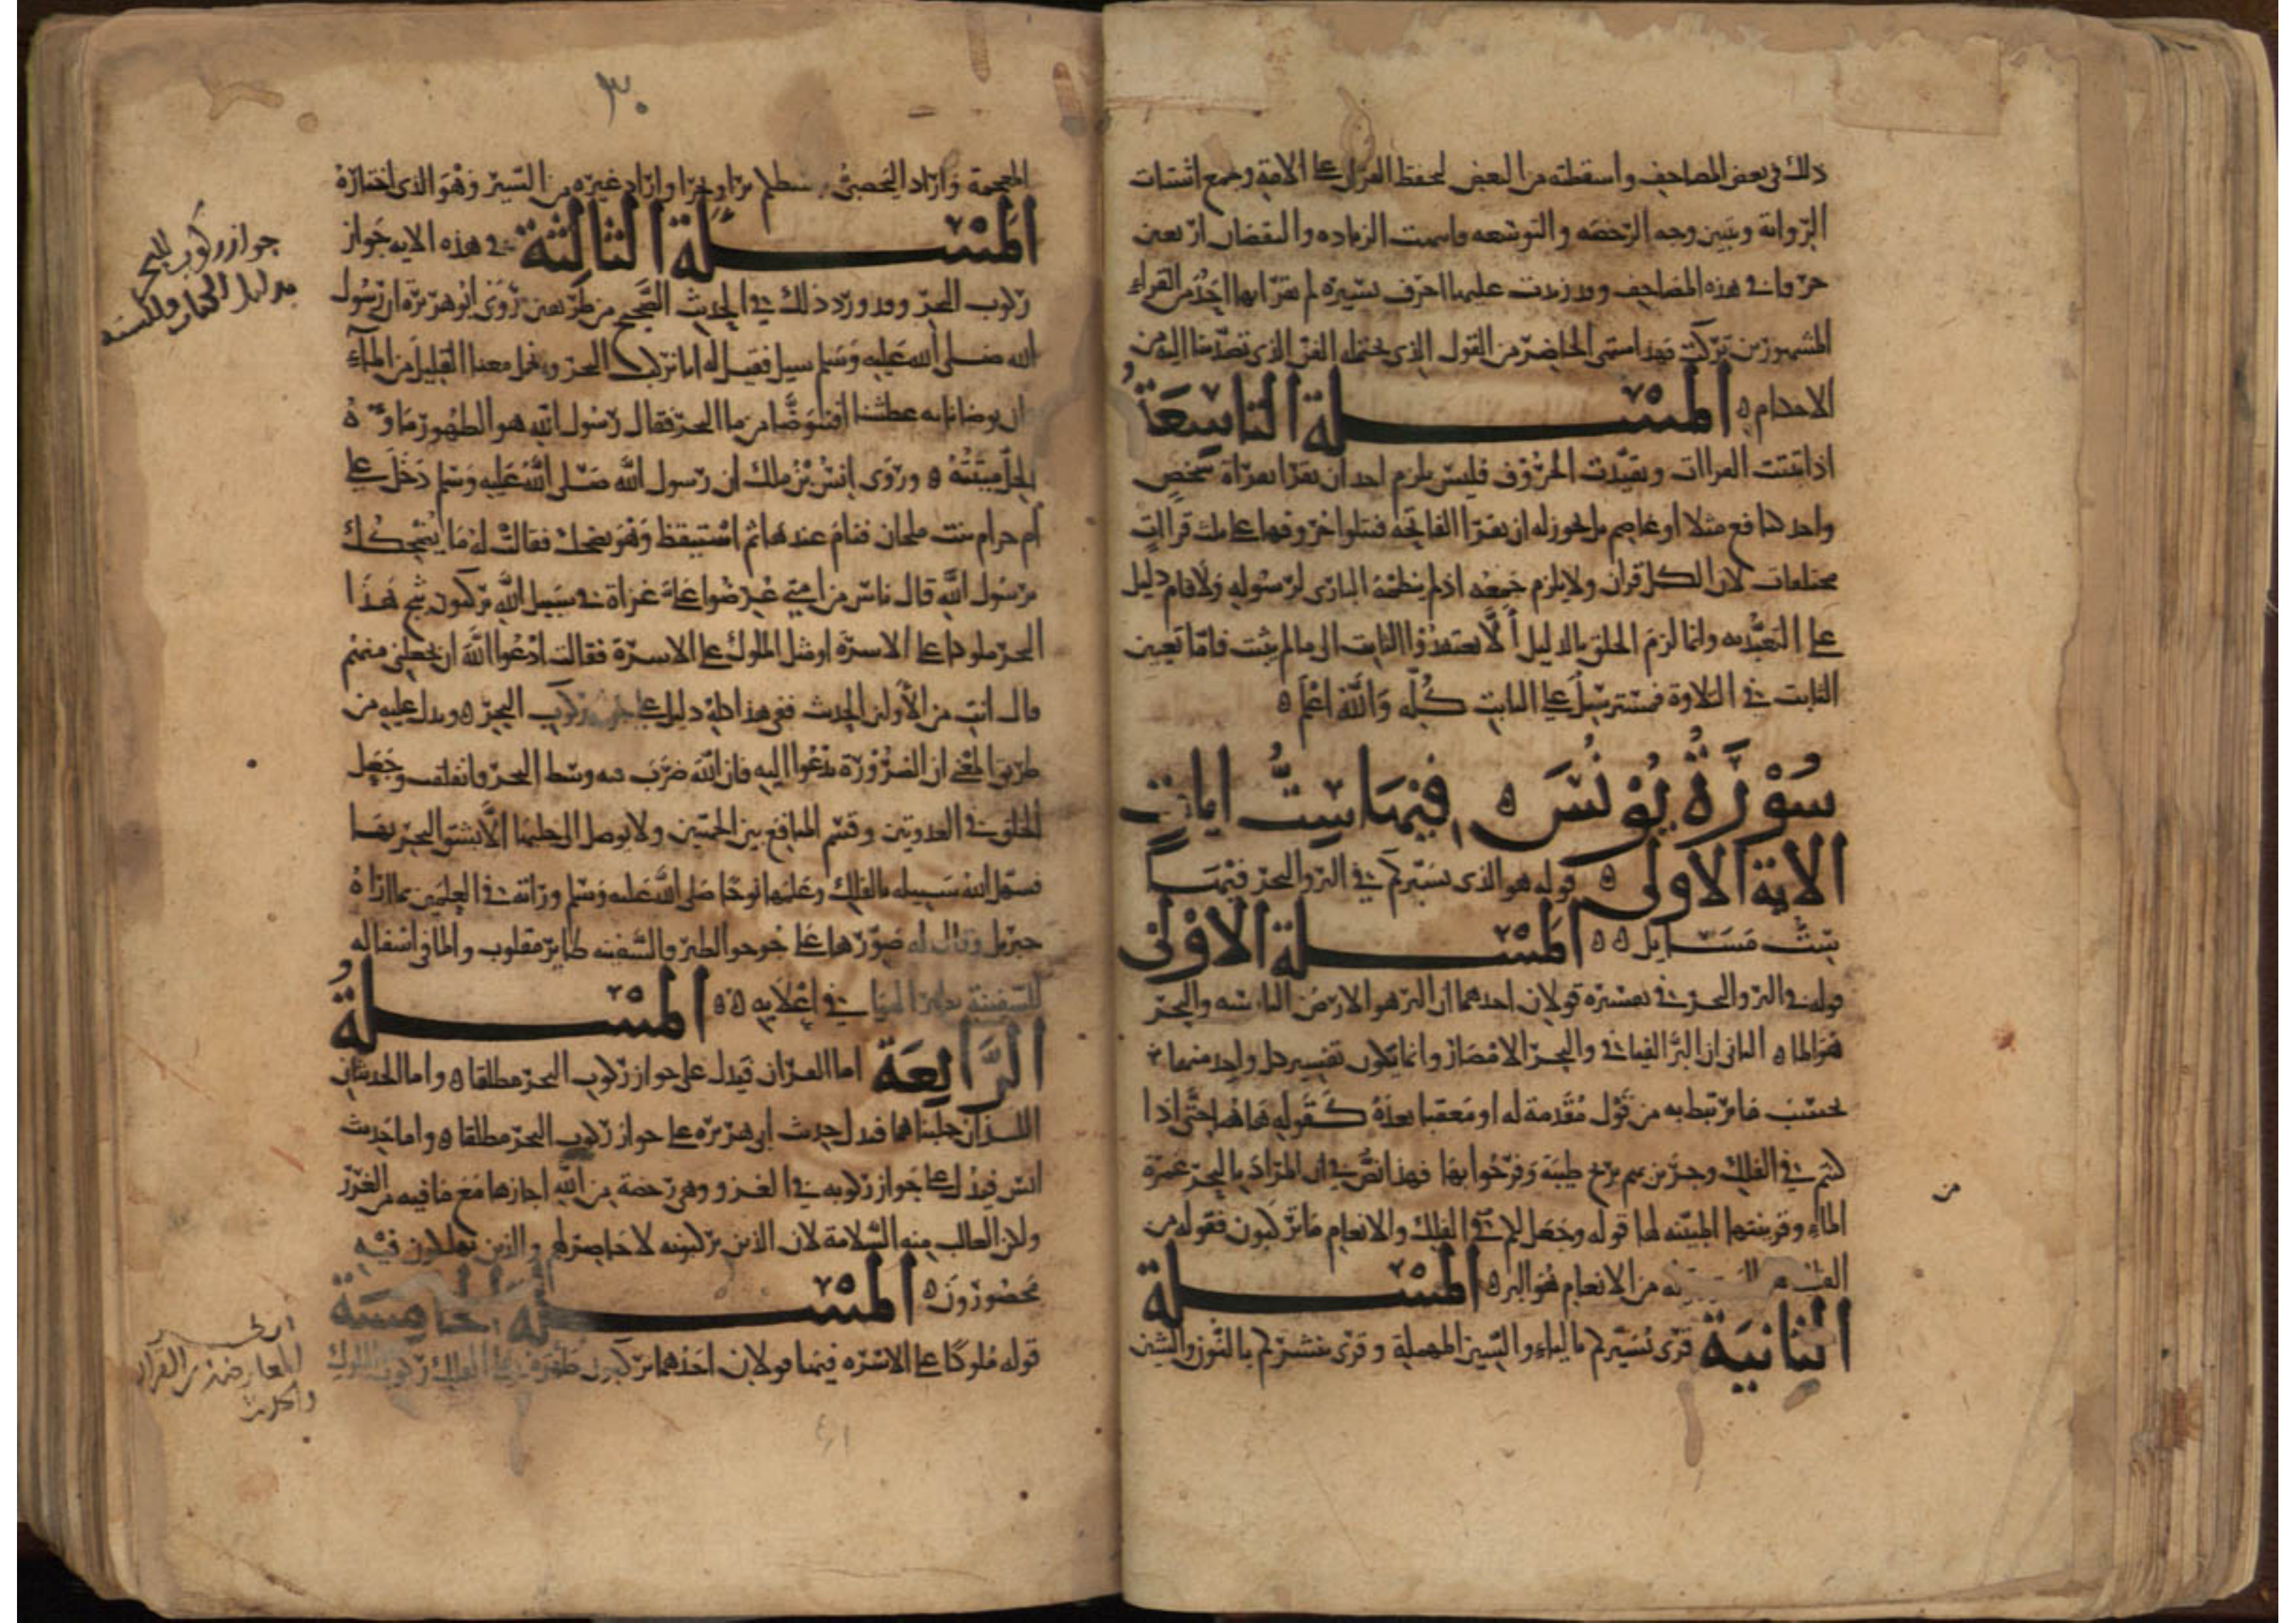 ذلك في بعض المصاحف واسقطته من البعض لحفظ القران على الامة وجمع اشتات
الرواية وتبيين وجه الرخصه والتوسعه فانتهت الزياده والنقصان اربعين
حرفا في هذه المصاحف وقد زيدت عليها احرف يسيره لم يقرا بها احد من القراء
المشهورين تركت فهذا منتهى الحاضر من القول الذي يحتمله الفن الذي تصدينا اليه من
الاحكام ه المسئلة التاسعة
اذا ثبتت القراات وتقيدت الحروف فليس يلزم احد ان يقرا بقراة شخص
واحد كنافع مثلا او عاصم بل يجوز له ان يقرا الفاتحه فيتلوا حروفها على ثلث قراات
مختلفات لان الكل قران ولا يلزم جمعه اذ لم ينظمه البارى لرسوله ولا قام دليل
على التعبد به وانما لزم الخلق بالدليل ألا يتعدوا الثابت الى ما لم يثبت فاما تعيين
الثابت في التلاوة فمسترسل على الثابت كله والله اعلم ه
سورة يونس ه فيها ست ايات
الاية الاولى ه قوله هو الذى يسيركم في البر والبحر فيها
ست مسايل ه ه المسئلة الاولى
قوله في البر والبحر في تفسيره قولان احدهما ان البر هو الارض اليابسه والبحر
هو الماء ه الثانى ان البر الفيافي والبحر الامصار وانما يكون تفسير كل واحد منهما
بحسب ما يرتبط به من قول مقدمة له او معقبا بعده كقوله هاهنا حتى اذا
كنتم في الفلك وجرين بهم بريح طيبة وفرحوا بها فهذا نص في ان المراد بالبحر غمرة
الماء وقرينتها المبينه لها قوله وجعل لكم من الفلك والانعام ما تركبون فقوله من
الفلك من الانعام هو البر ه المسئلة
الثانية قرى يسيركم بالياء والسين المهملة وقرى ينشركم بالنون والشين
من
٣٠
المعجمة واراد اليحصبى يبسطكم برا وبحرا واراد غيره من السير وهو الذى اختاره
المسئلة الثالثة في هذه الايه جواز
ركوب البحر وقد ورد ذلك في الحديث الصحيح من طريقين روى ابو هريرة ان رسول
الله صلى الله عليه وسلم سيل فقيل له انا نركب البحر ونحمل معنا القليل من الماء
فان توضانا به عطشنا افنتوضا من ما البحر فقال رسول الله هو الطهور ماوه
الحل ميتته ه وروى انس بن ملك ان رسول الله صلى الله عليه وسلم دخل على
ام حرام بنت ملحان فنام عندها ثم استيقظ وهو يضحك فقالت له ما يضحكك
يرسول الله قال ناس من امتي عرضوا على غزاة في سبيل الله يركبون ثبج هذا
البحر ملوكا على الاسرة او مثل الملوك على الاسرة فقالت ادعوا الله ان يجعلني منهم
قال انت من الأولين الحديث ففي هذا كله دليل على جواز ركوب البحر ه ويدل عليه من
طريق المعنى ان الضرورة تدعوا اليه فان الله ضرب به وسط البحر فانفلق وجعل
الخلق في العدوتين وقسم المنافع بين الجهتين ولا يوصل الى جلبها الا بشق البحر بها
فسهل الله سبيله بالفلك وعلمها نوحا صلى الله عليه وسلم وراثة في العلمين بما اراه
جبريل وقال له صورها على جوجو الطير فالسفينه طاير مقلوب والما في اسفاله
للسفينة نظير الهوا في اعلايه ه ه المسئلة
الرابعة اما القران فيدل على جواز ركوب البحر مطلقا ه واما الحديثان
اللذان جلبناهما فيدل حديث ابى هريره على جواز ركوب البحر مطلقا ه واما حديث
انس فيدل على جواز ركوبه في الغزو وهي رخصة من الله اجازها مع ما فيه من الغرر
ولان الغالب منه السلامة لان الذين يركبونه لا حاصر لهم والذين يهلكون فيه
محصورون ه المسئلة الخامسة
قوله ملوكا على الاسره فيها قولان احدهما يركبون ظهره على الفلك ركوب الملوك
جواز ركوب البحر
بدليل الكتاب والسنه
انظر
المعارضه من القرآن
والحديث